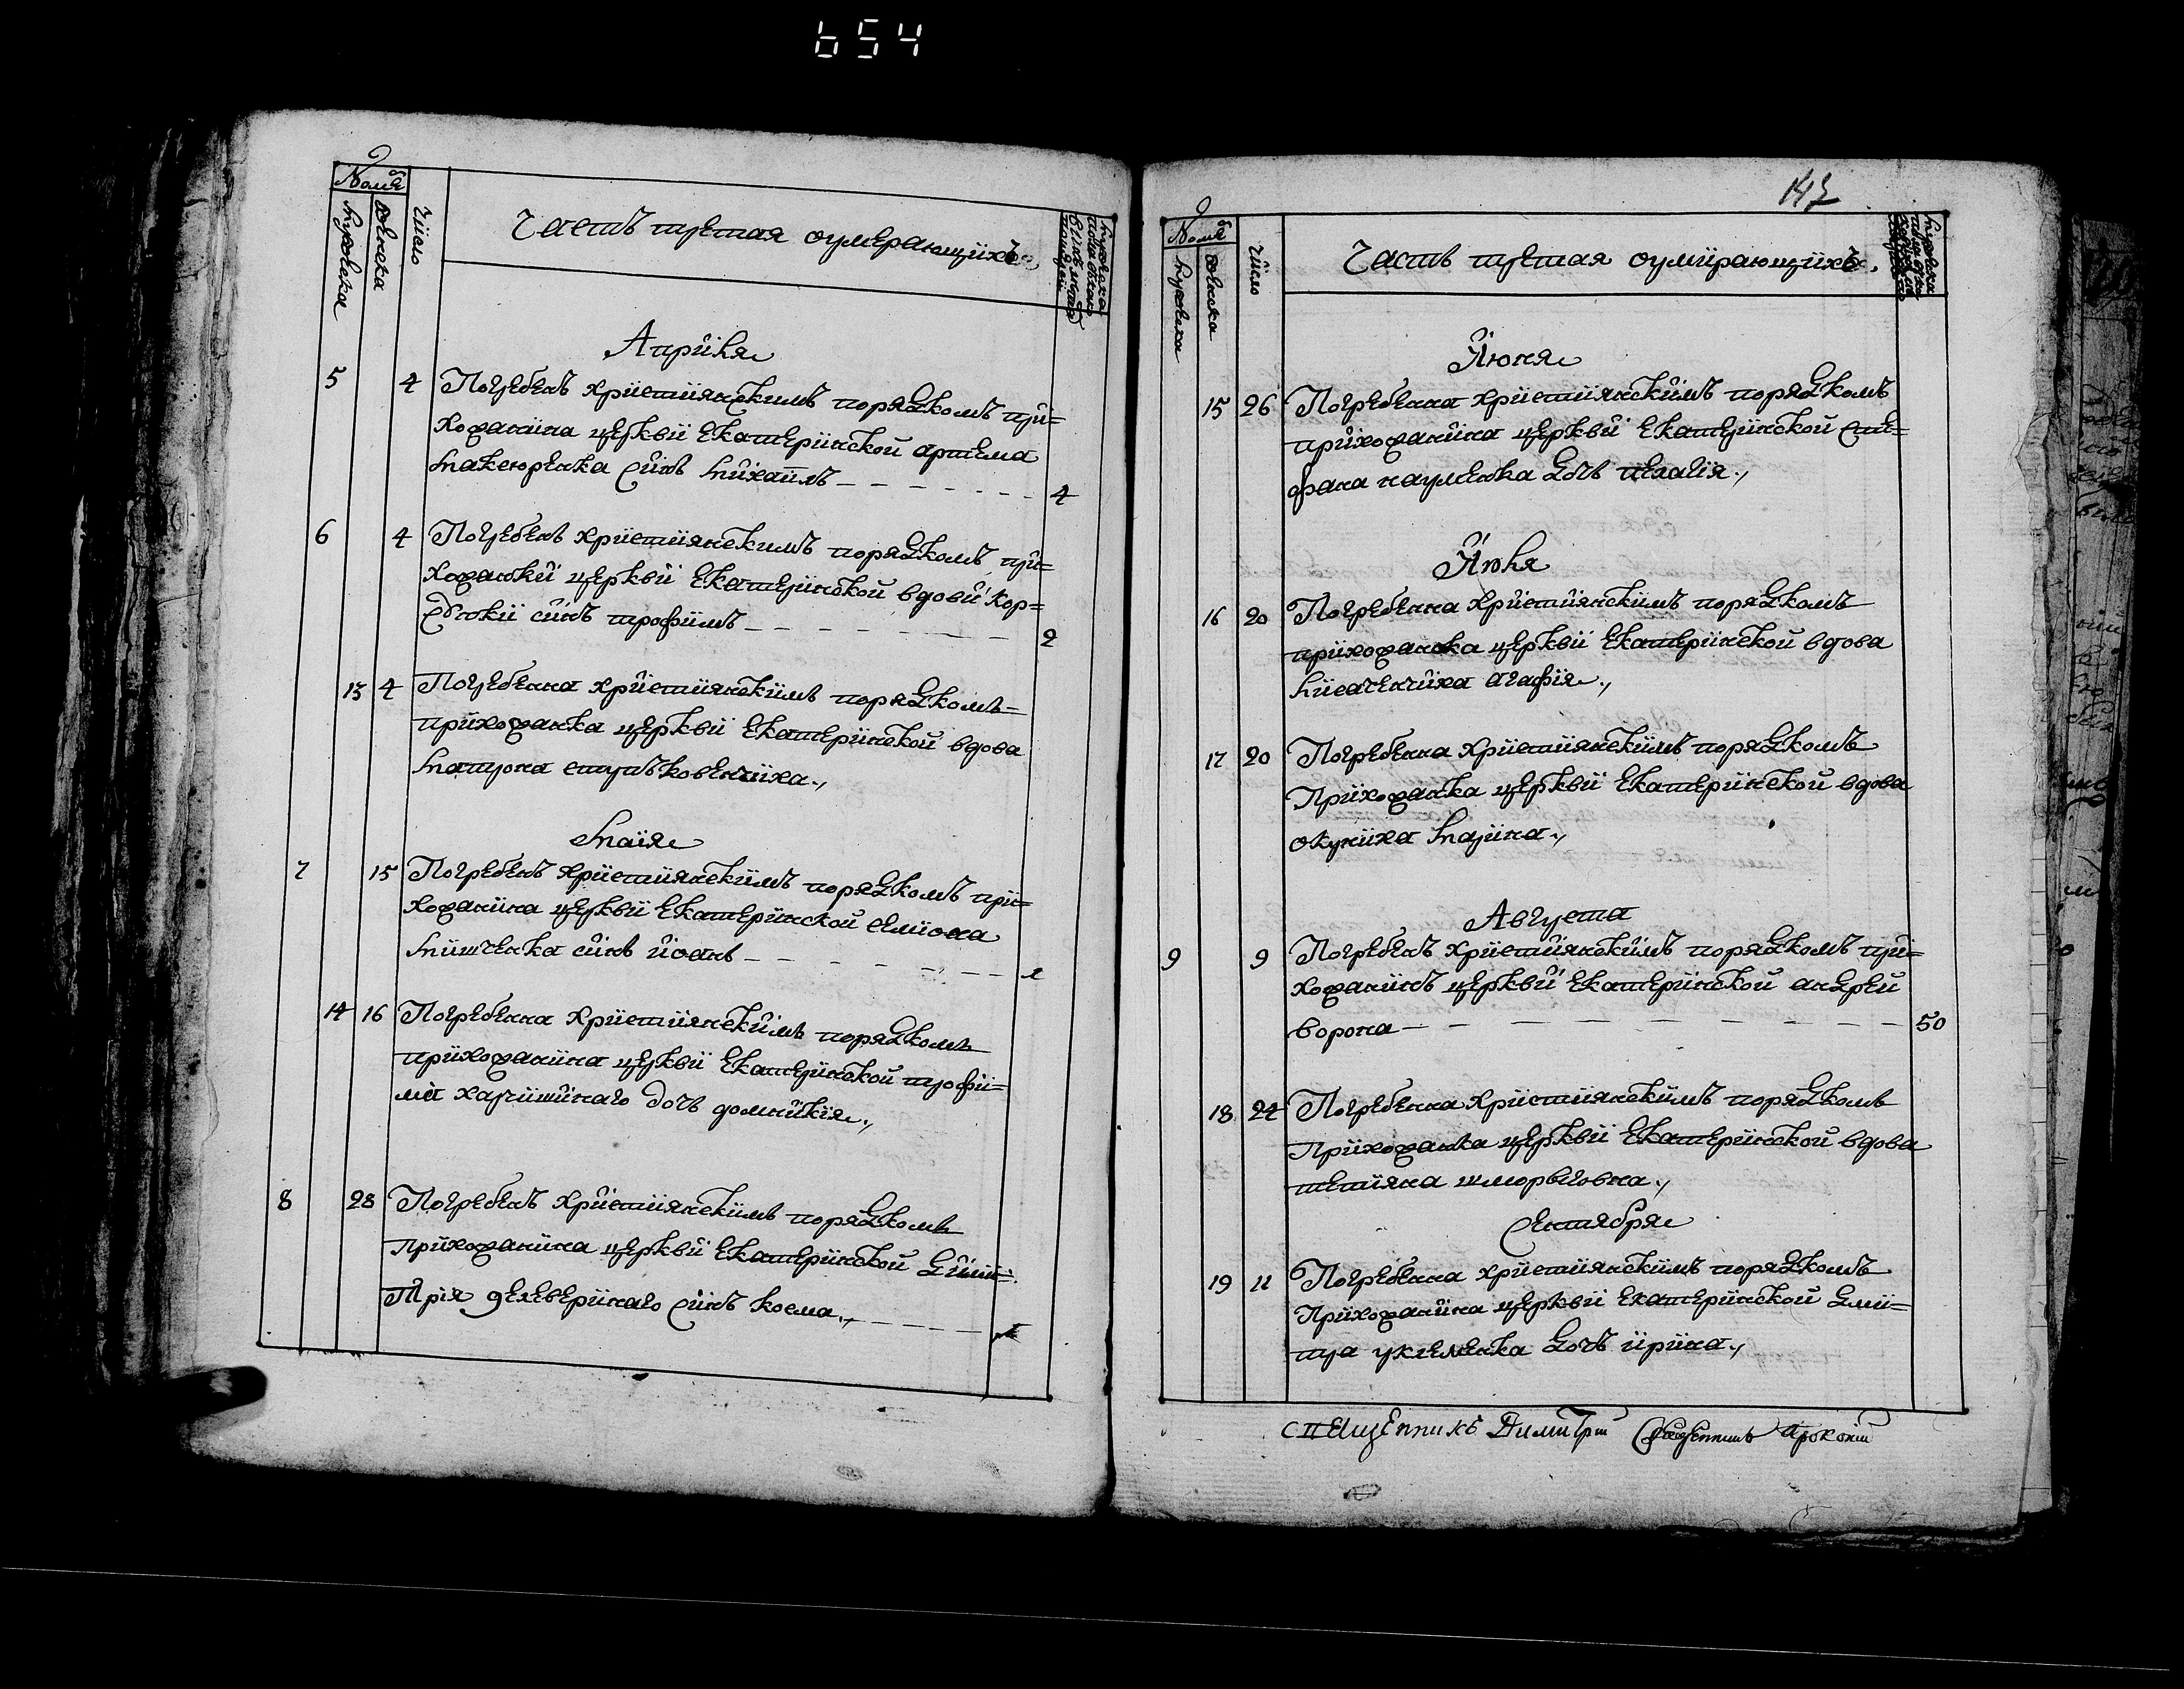 654
Номѣ
Мужеска
Женска
Число
Часть третая оумерающихъ
Априля
5 4 Погребенъ християнскимъ порядкомъ при=
хожанина церкви Екатеринской артема
Максюренка синъ Михаилъ 4
6 4 Погребенъ християнскимъ порядкомъ при=
хожанки церкви Екатеринской вдови кор=
синъ трофимъ 2
13 4 Погребенна християнскимъ порядкомъ
прихожанка церкви Екатеринской вдова
Матрона
Маия
7 15 Погребенъ християнскимъ порядкомъ при=
хожанина церкви Екатеринской симиона
Мишченка синъ иоанъ 1
14 16 Погребенна християнскимъ порядкомъ
прихожанина церкви Екатеринской трофи=
ма харишинаго дочь домникия
8 28 Погребенъ християнскимъ порядкомъ
прихожанина церкви Екатеринской дими=
трія синъ косма
147
Номѣ
Мужеска
Женска
Число
Часть третая оумирающихъ
Июня
15 26 Погребенна християнскимъ порядкомъ
прихожанина церкви Екатеринской сте=
фана науменка дочь пелагія
Июля
16 20 Погребенна християнскимъ порядкомъ
прихожанка церкви Екатеринской вдова
агафія
17 20 Погребенна християнскимъ порядкомъ
Прихожанка церкви Екатеринской вдова
окуниха Марина
Августа
9 9 Погребенъ християнскимъ порядкомъ при=
хожанинъ церкви Екатеринской андрей
ворона 50
18 24 Погребенна християнскимъ порядкомъ
Прихожанка церкви Екатеринской вдова
тетияна
Сентября
19 11 Погребенна християнскимъ порядкомъ
Прихожанина церкви Екатеринской дми=
тра дочь ирина
Димитри Священникъ Прокопий